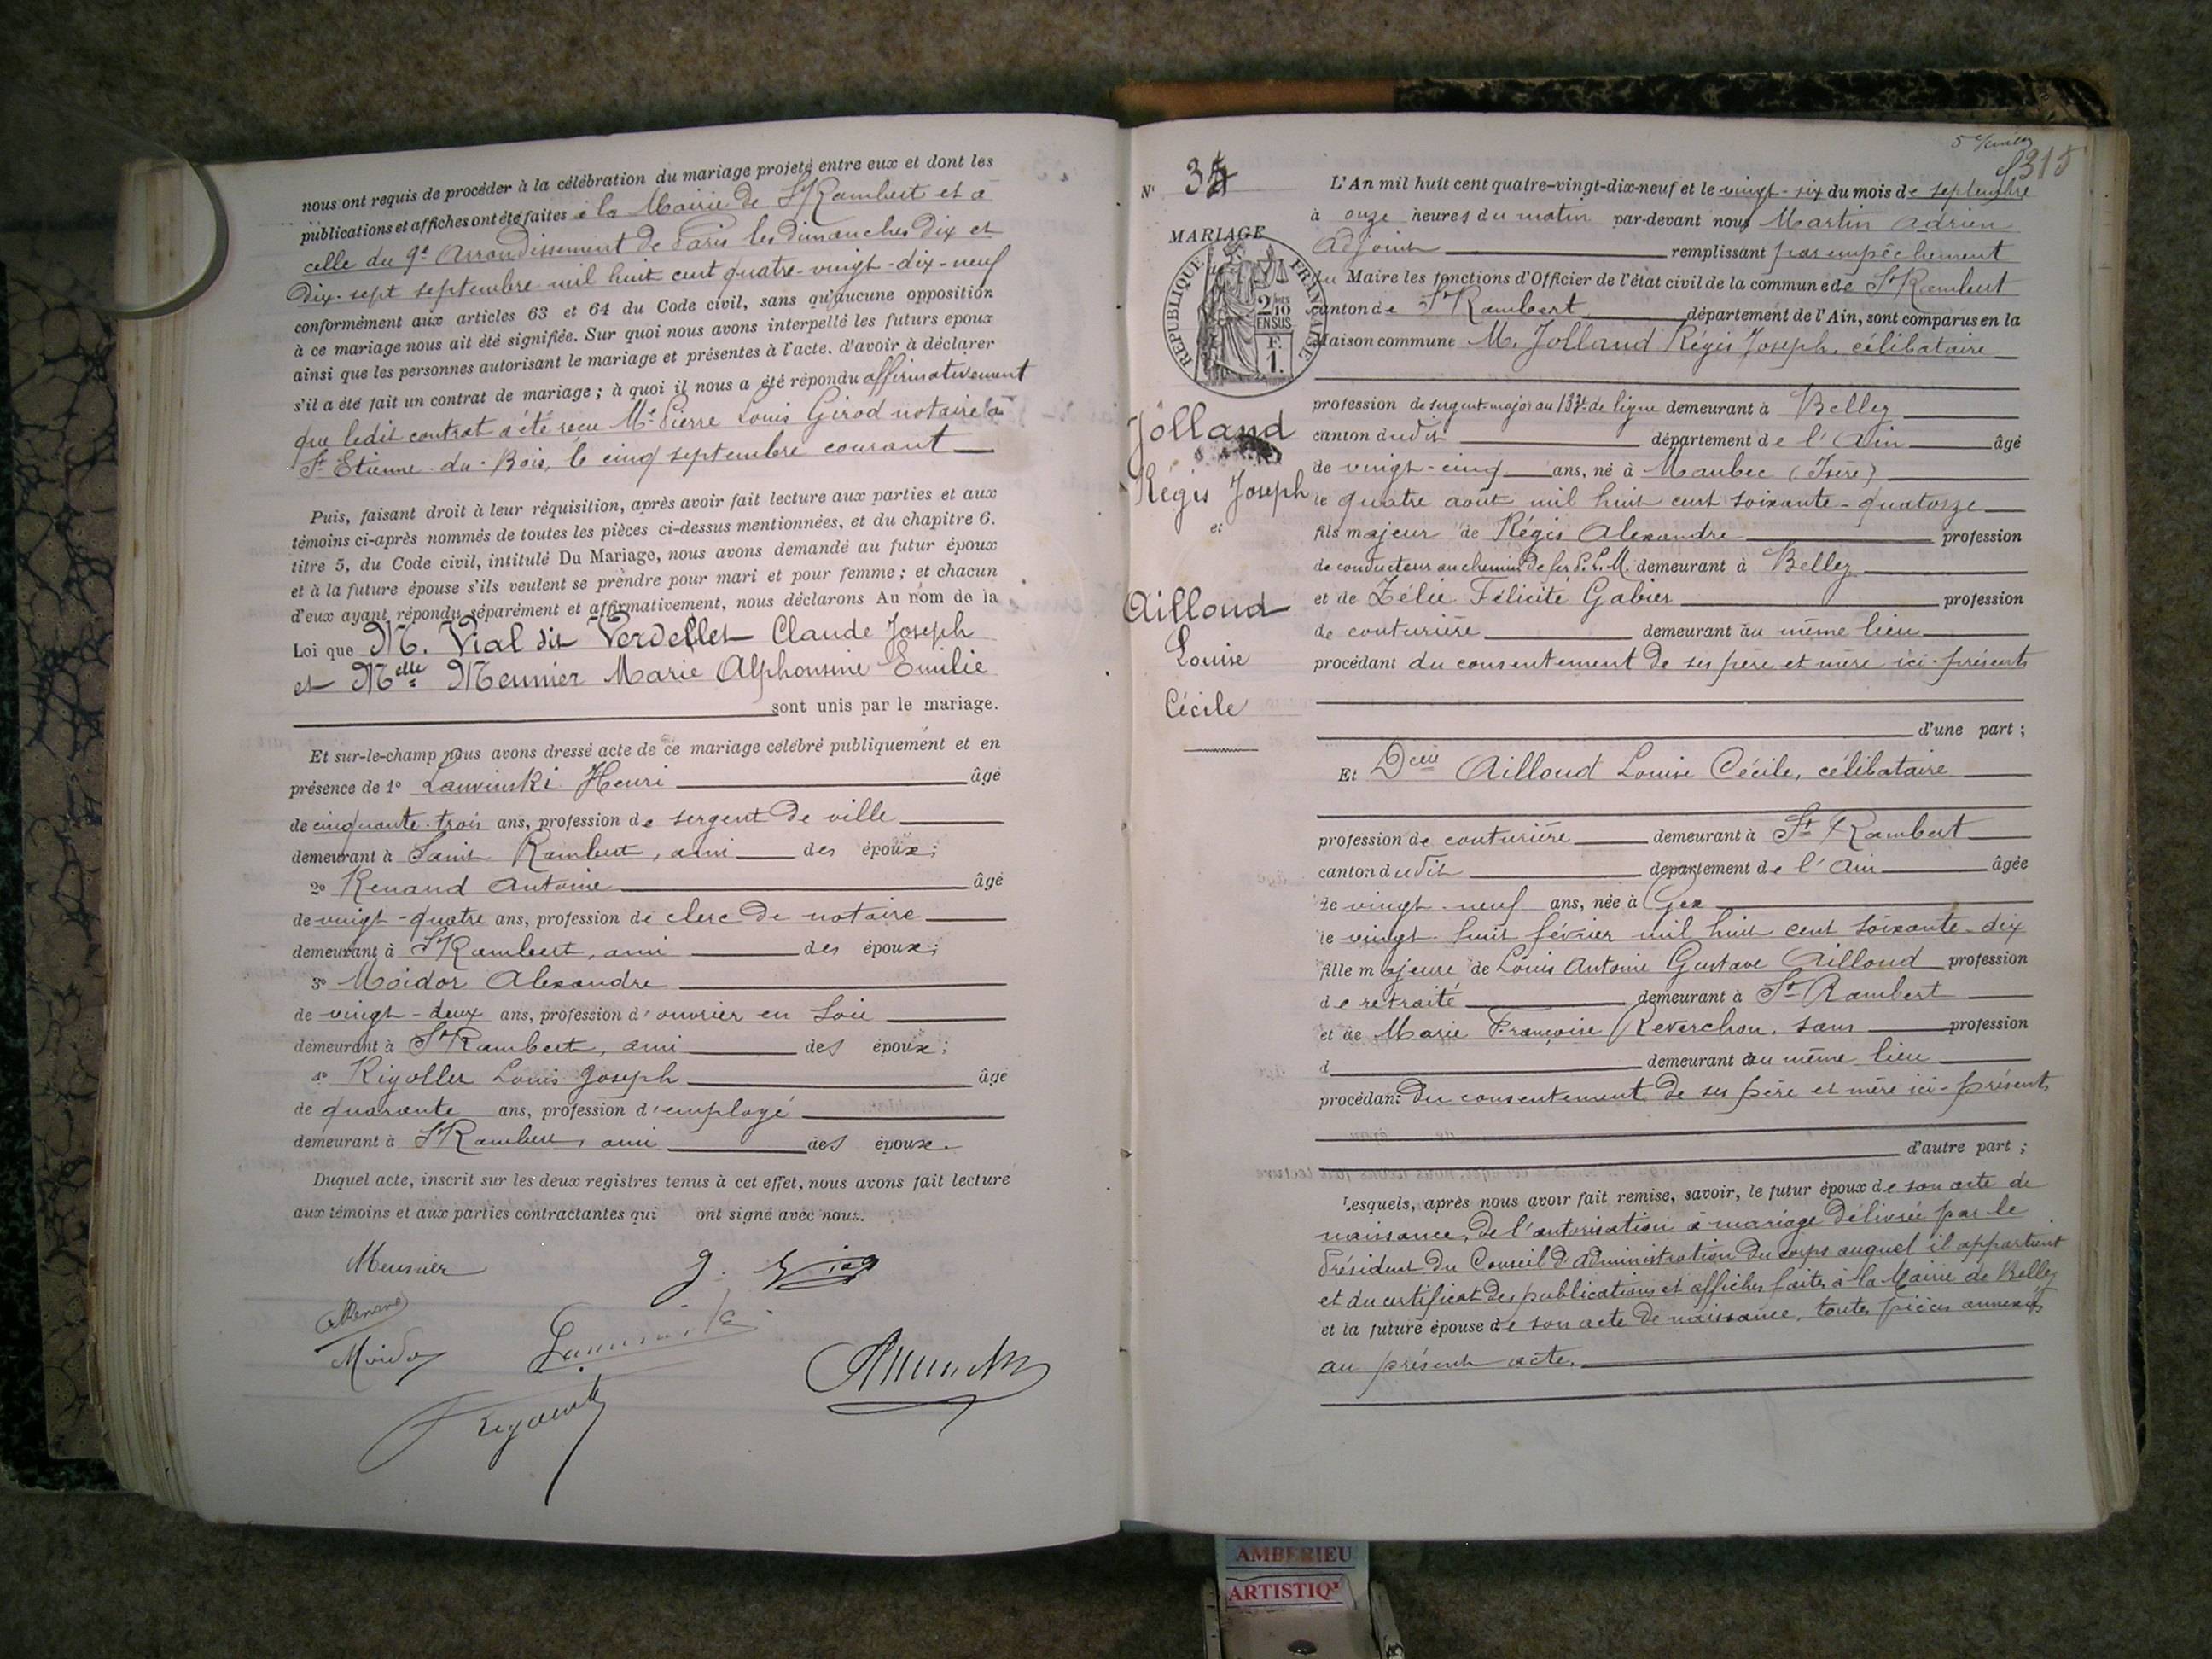 nous ont requis de procéder à la célébration du mariage projeté entre eux et dont les
publications et affiches ont été faites à la Mairie de St Rambert et à
celle du 9e Arrondissement de Paris les dimanches dix et
dix-sept septembre mil huit cent quatre-vingt-dix-neuf
conformément aux articles 63 et 64 du Code civil, sans qu'aucune opposition
à ce mariage nous ait été signifiée. Sur quoi nous avons interpellé les futurs époux
ainsi que les personnes autorisant le mariage et présentes à l'acte, d'avoir à déclarer
s'il a été fait un contrat de mariage ; à quoi il nous a été répondu affirmativement
que ledit contrat a été reçu Me Pierre Louis Girod notaire à
St Etienne-du-Bois, le cinq septembre courant
Puis, faisant droit à leur réquisition, après avoir fait lecture aux parties et aux
témoins ci-après nommés de toutes les pièces ci-dessus mentionnées, et du chapitre 6.
titre 5, du Code civil, intitulé Du Mariage, nous avons demandé au futur époux
et à la future épouse s'ils veulent se prendre pour mari et pour femme ; et chacun
d'eux ayant répondu séparément et affirmativement, nous déclarons Au nom de la
Loi que M. Vial dit Verdellet Claude Joseph
et Melle Meunier Marie Alphonsine Emilie
sont unis par le mariage.
Et sur-le-champ nous avons dressé acte de ce mariage célébré publiquement et en
présence de 1° Lawinski Henri âgé
de cinquante-trois ans, profession de sergent de ville
demeurant à Saint Rambert, ami des époux ;
2° Renand Antoine âgé
de vingt-quatre ans, profession de clerc de notaire
demeurant à St Rambert, ami des époux ;
3° Moidor Alexandre
de vingt-deux ans, profession d'ouvrier en soie
demeurant à St Rambert, ami des époux ;
4° Rigollet Louis Joseph âgé
de quarante ans, profession d'employé
demeurant à St Rambert, ami des époux.
Duquel acte, inscrit sur les deux registres tenus à cet effet, nous avons fait lecture
aux témoins et aux parties contractantes qui ont signé avec nous.
Meunier
J. Vial
Renand
Moidor
5e
315
N° 34
MARIAGE
REPUBLIQUE FRANÇAISE
2/10
EN SUS
F.
1.
Jolland
Régis Joseph
et
Ailloud
Louise
Cécile
L'An mil huit cent quatre-vingt-dix-neuf et le vingt-six du mois de septembre
à onze heures du matin par-devant nous Martin Adrien
Adjoint remplissant par empêchement
du Maire les fonctions d'Officier de l'état civil de la commune de St Rambert
canton de St Rambert département de l'Ain, sont comparus en la
Maison commune M. Jolland Régis Joseph, célibataire
profession de sergent-major au 133e de ligne demeurant à Belley
canton dudit département de l'Ain âgé
de vingt-cinq ans, né à Maubec (Isère)
le quatre août mil huit cent soixante-quatorze
fils majeur de Régis Alexandre profession
de conducteur au chemin de fer P.L.M. demeurant à Belley
et de Zélie Félicité Gabier profession
de couturière demeurant au même lieu
procédant du consentement de ses père et mère ici-présents
d'une part ;
Et Delle Ailloud Louise Cécile, célibataire
profession de couturière demeurant à St Rambert
canton dudit département de l'Ain âgée
de vingt-neuf ans, née à Gex
le vingt-huit février mil huit cent soixante-dix
fille majeure de Louis Antoine Gustave Ailloud profession
de retraité demeurant à St Rambert
et de Marie Françoise Reverchon, sans profession
d demeurant au même lieu
procédant du consentement de ses père et mère ici-présents
d'autre part ;
Lesquels, après nous avoir fait remise, savoir, le futur époux de son acte de
naissance, de l'autorisation à mariage délivrée par le
Président du Conseil d'Administration du corps auquel il appartient
et du certificat des publications et affiches faites à la Mairie de Belley
et la future épouse de son acte de naissance, toutes pièces annexées
au présent acte.
AMBERIEU
ARTISTIQ